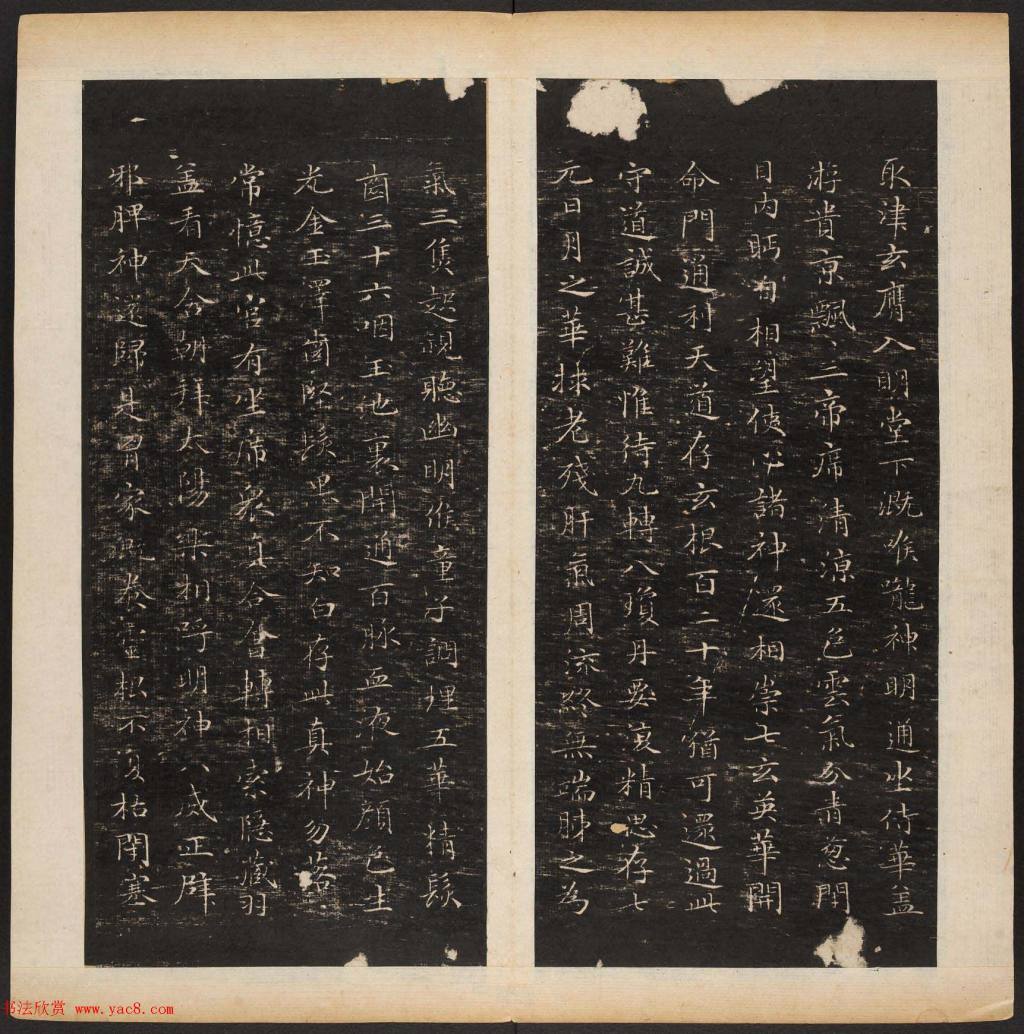 取津玄膺入明堂下溉喉嚨神明通坐侍華蓋
游貴京飄飄三帝席清涼五色雲氣分青葱閉
目內眄自相望使心諸神還相崇七玄英華開
命門通利天道存玄根百二十年猶可還過此
守道誠甚難惟待九轉八瓊丹要復精思存七
元日月之華捄老殘肝氣周流終無端肺之為
氣三焦起視聽幽明候童子調理五華精髮
齒三十六咽玉池裏開通百脉血液始顏色生
光金玉澤齒堅髮黑不知白存此真神勿落落
常憶此宮有坐席衆真合會轉相索隱藏羽
蓋看天舍朝拜太陽樂相呼明神八威正辟
邪脾神還歸是胃家耽養靈根不復枯閉塞
书法欣赏 www.yac8.com